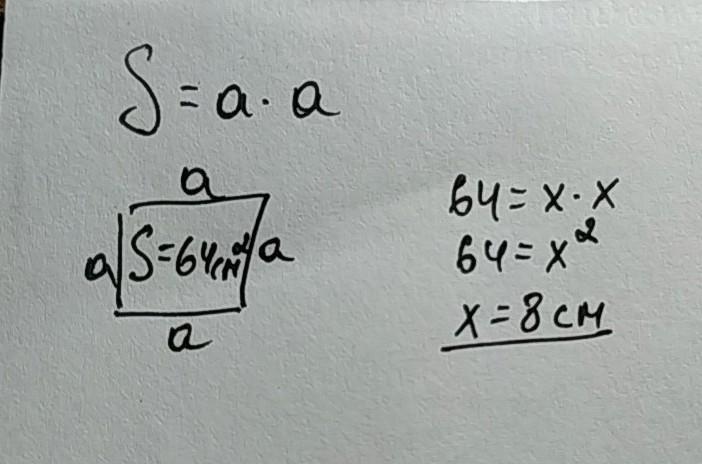 S = a · a
a
a S=64см² a
a
64 = x · x
64 = x²
x = 8 см